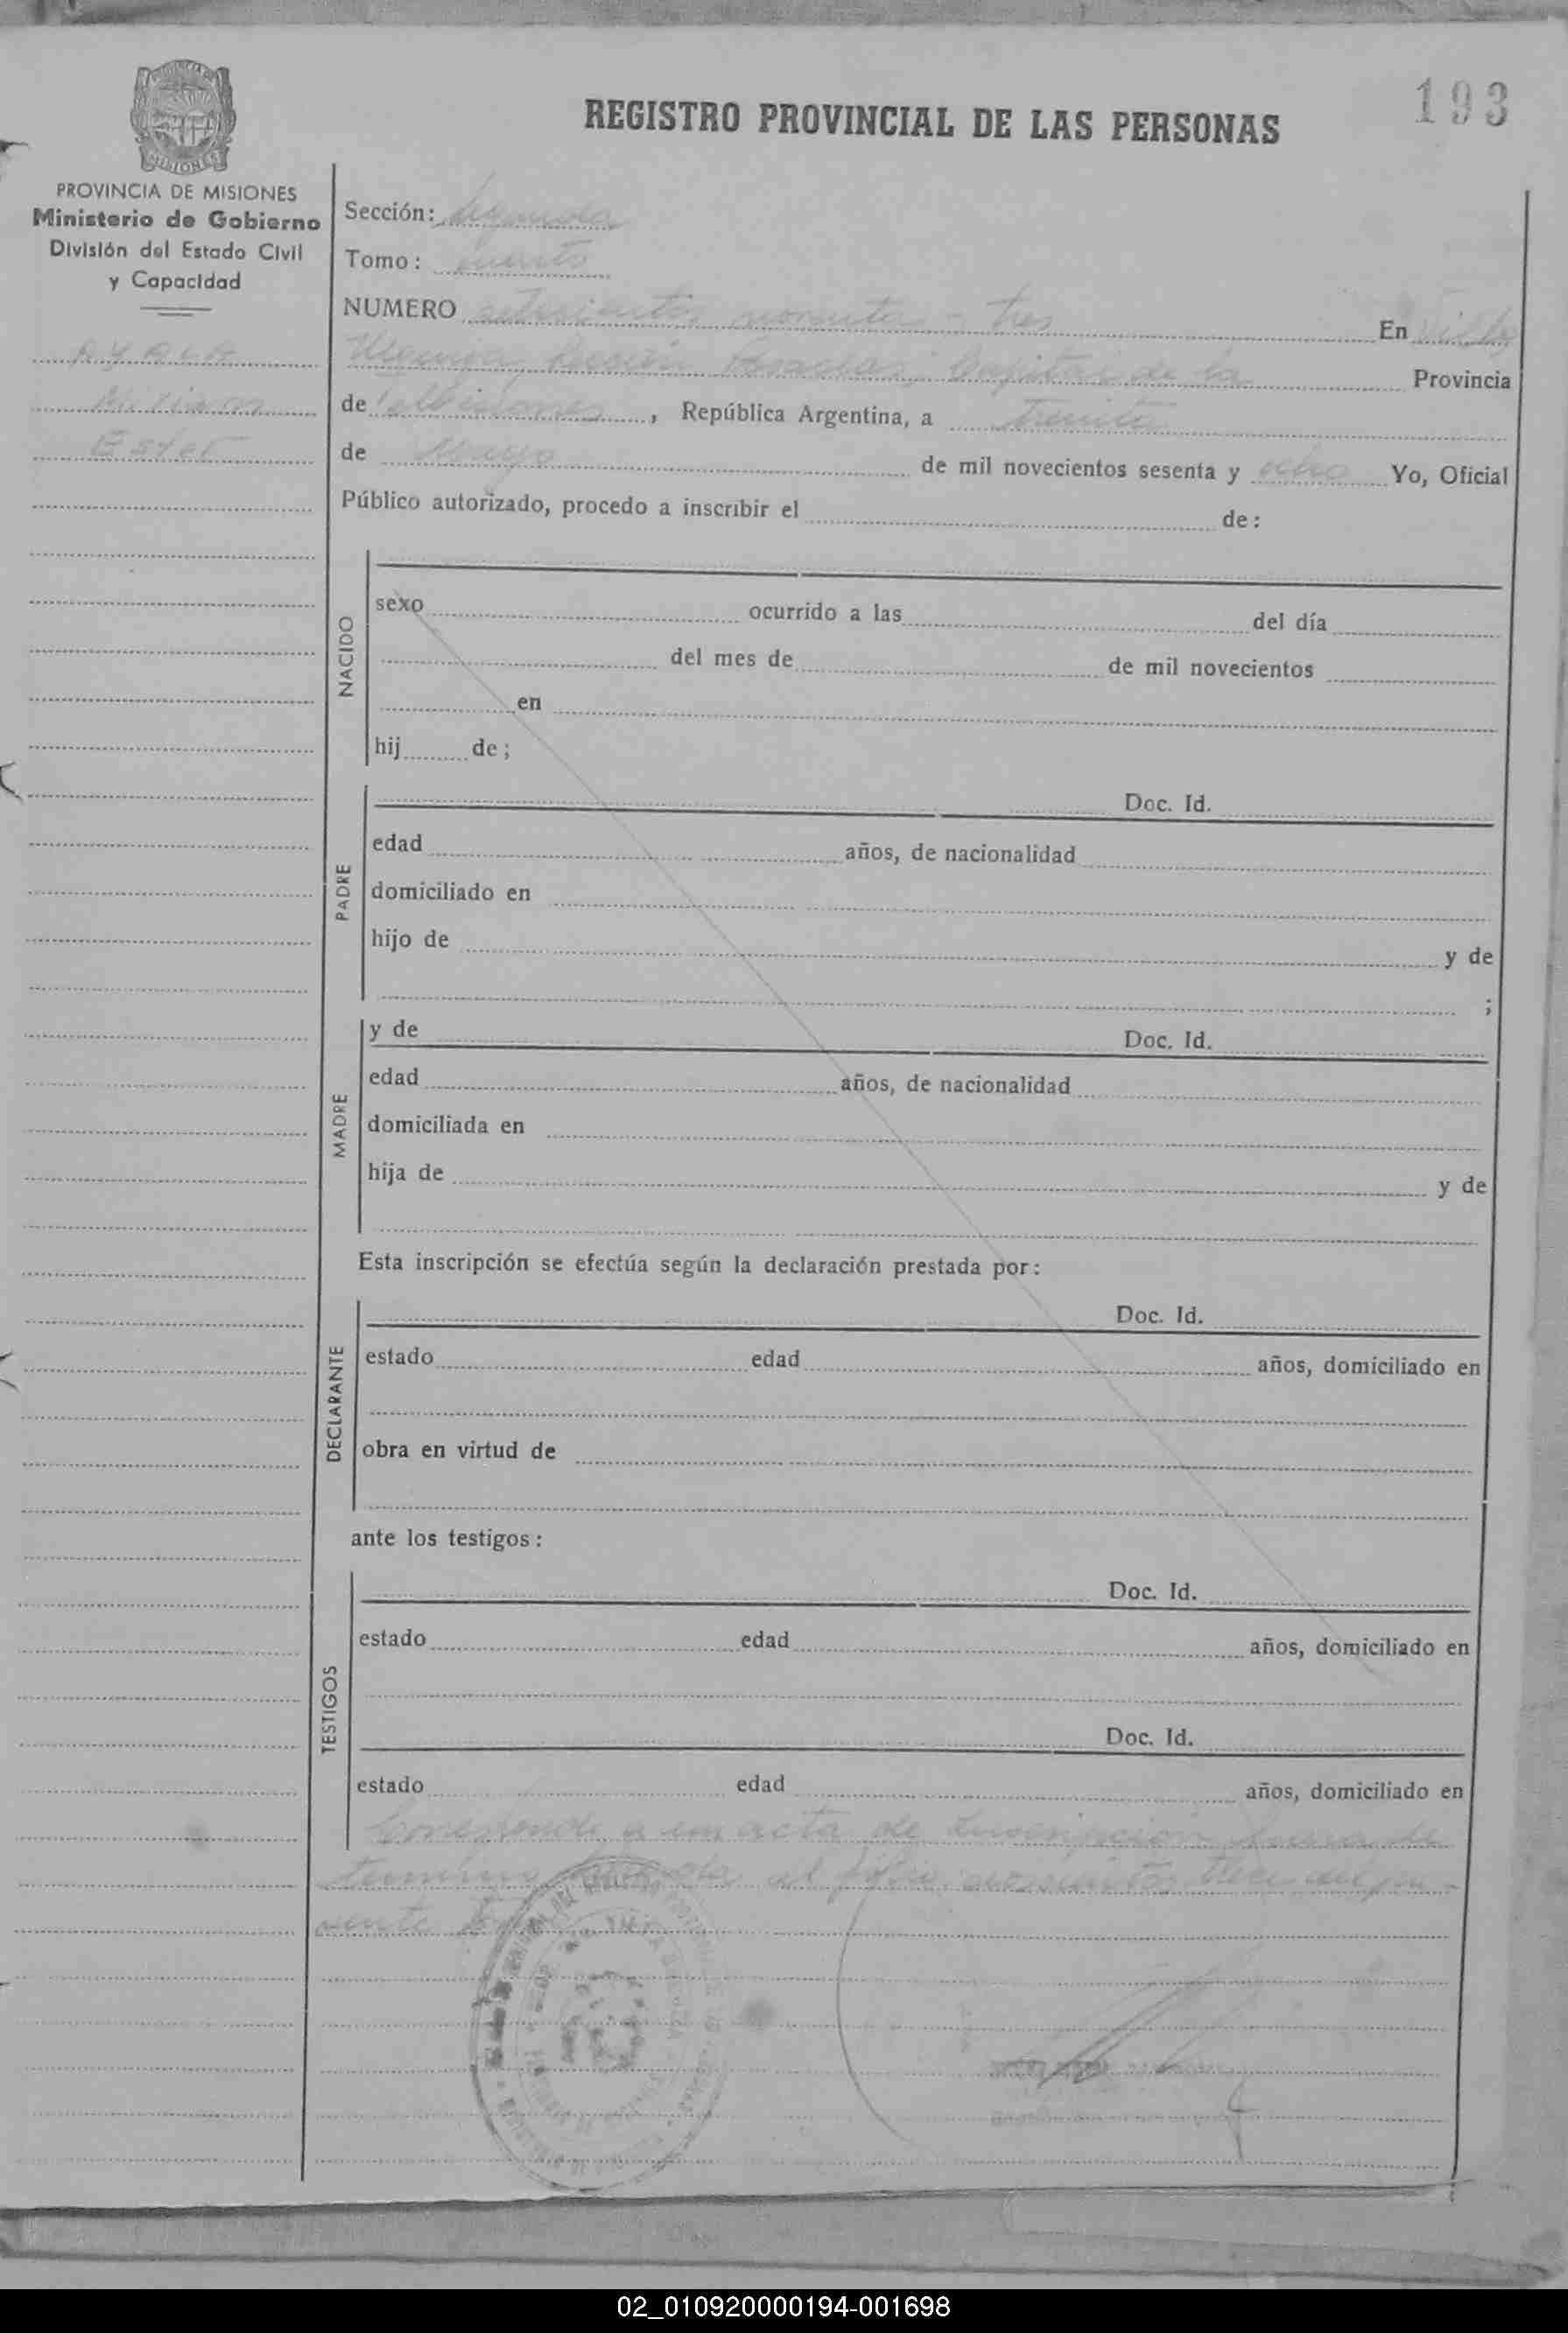 193
REGISTRO PROVINCIAL DE LAS PERSONAS
MISIONES
PROVINCIA DE MISIONES
Ministerio de Gobierno
División del Estado Civil
y Capacidad
AYALA
Mirian
Ester
Sección: Segunda
Tomo: cuarto
NUMERO setecientos noventa - tres En Villa
Urquiza Sección Posadas, Capital de la Provincia
de Misiones, República Argentina, a treinta
de Mayo de mil novecientos sesenta y ocho Yo, Oficial
Público autorizado, procedo a inscribir el de:
NACIDO
sexo ocurrido a las del día
del mes de de mil novecientos
en
hij de;
PADRE
Doc. Id.
edad años, de nacionalidad
domiciliado en
hijo de y de
;
MADRE
y de Doc. Id.
edad años, de nacionalidad
domiciliada en
hija de y de
Esta inscripción se efectúa según la declaración prestada por:
DECLARANTE
Doc. Id.
estado edad años, domiciliado en
obra en virtud de
ante los testigos:
TESTIGOS
Doc. Id.
estado edad años, domiciliado en
Doc. Id.
estado edad años, domiciliado en
Corresponde a un acta de inscripción fuera de
termino al folio doscientos trece del pre-
sente
02_010920000194-001698